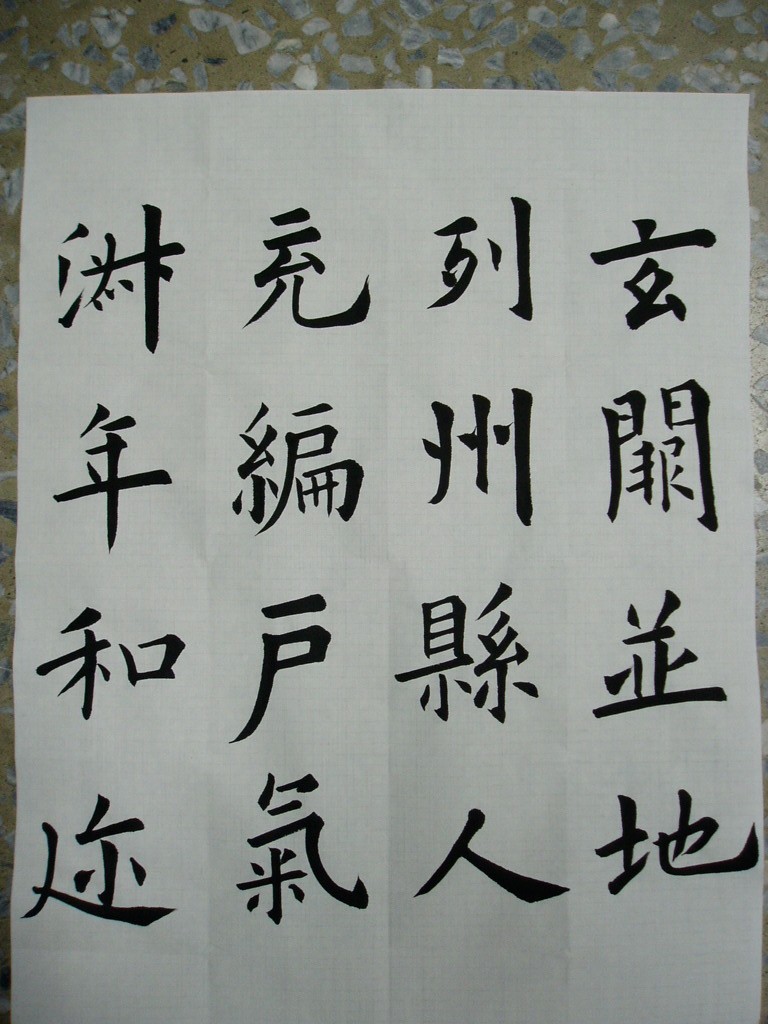 玄闕並地
列州縣人
充編戶氣
淑年和迩